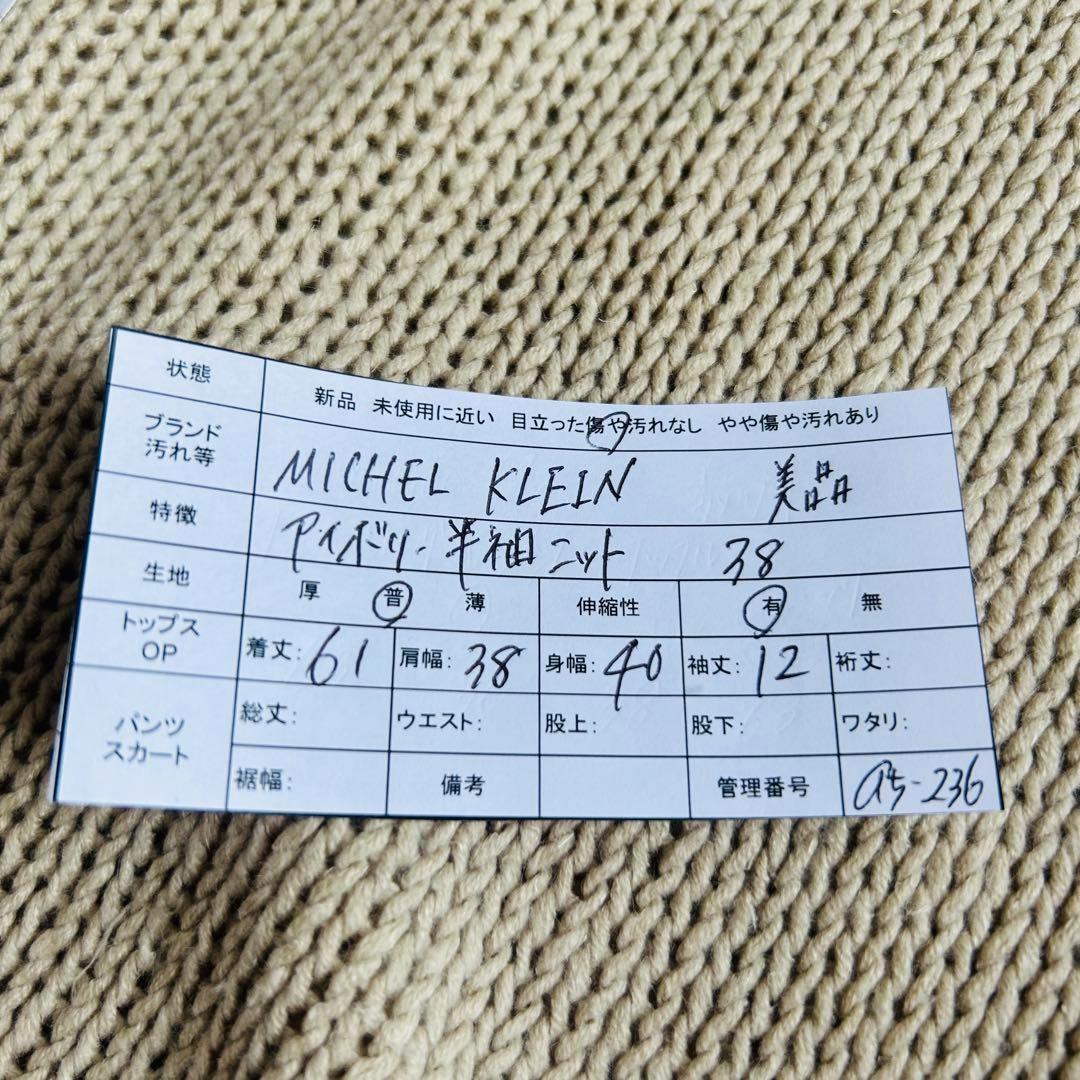 状態 新品 未使用に近い 目立った傷や汚れなし やや傷や汚れあり
ブランド 汚れ等 MICHEL KLEIN 美品
特徴 アイボリー 半袖ニット 38
生地 厚 普 薄 伸縮性 有 無
トップス OP 着丈: 61 肩幅: 38 身幅: 40 袖丈: 12 裄丈:
パンツ スカート 総丈: ウエスト: 股上: 股下: ワタリ:
裾幅: 備考 管理番号 -236